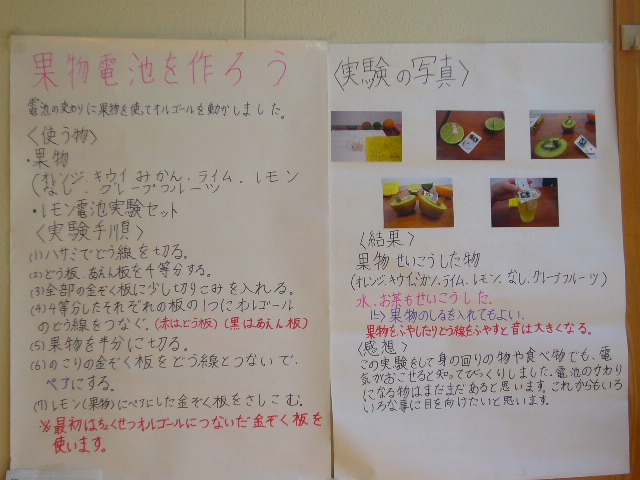 果物電池を作ろう
電池の変わりに果物を使ってオルゴールを動かしました。
〈使う物〉
・果物
(オレンジ、キウイ、みかん、ライム、レモン
なし、グレープフルーツ
・レモン電池実験セット
〈実験手順〉
(1)ハサミでどう線を切る。
(2)どう板、あえん板を4等分する。
(3)全部の金ぞく板に少し切りこみを入れる。
(4)4等分したそれぞれの板の1つにオルゴール
のどう線をつなぐ。(赤はどう板)(黒はあえん板)
(5)果物を半分に切る。
(6)のこりの金ぞく板をどう線とつないで、
ペアにする。
(7)レモン(果物)にペアにした金ぞく板をさしこむ。
※最初はちょくせつオルゴールにつないだ金ぞく板を
使います。
〈実験の写真〉
〈結果〉
果物せいこうした物
(オレンジ、キウイ、みかん、ライム、レモン、なし、グレープフルーツ)
水、お茶もせいこうした。
↳果物のしるを入れてもよい。
果物をふやしたりどう線をふやすと音は大きくなる。
〈感想〉
この実験をして身の回りの物や食べ物でも、電
気がおこせると知ってびっくりしました。電池のかわり
になる物はまだまだあると思います。これからもいろ
いろな事に目を向けたいと思います。